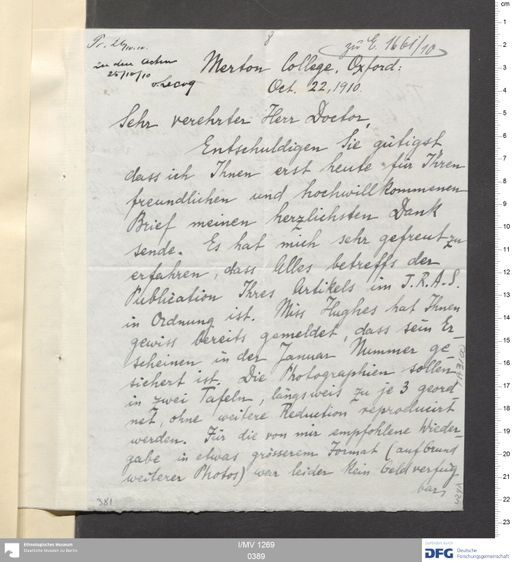 8
zu E. 1661/10
in den Acten
25/10/10
v. Lecoq
Merton College, Oxford:
Oct. 22, 1910.
Sehr verehrter Herr Doctor,
Entschuldigen Sie gütigst
dass ich Ihnen erst heute für Ihren
freundlichen und hochwillkommenen
Brief meinen herzlichsten Dank
sende. Es hat mich sehr gefreut zu
erfahren, dass Alles betreffs der
Publication Ihres Artikels im J.R.A.S.
in Ordnung ist. Miss Hughes hat Ihnen
gewiss bereits gemeldet, dass sein Er-
scheinen in der Januar Nummer ge-
sichert ist. Die Photographien sollen
in zwei Tafeln, längsweis zu je 3 geord
net, ohne weitere Reduction reproducirt
werden. Für die von mir empfohlene Wieder-
gabe in etwas grösserem Format (auf Grund
weiterer Photos) war leider kein Geld verfüg
bar,
381
Ethnologisches Museum
Staatliche Museen zu Berlin
I/MV 1269
0389
gefördert durch
DFG Deutsche
Forschungsgemeinschaft
cm
1
2
3
4
5
6
7
8
9
10
11
12
13
14
15
16
17
18
19
20
21
22
23